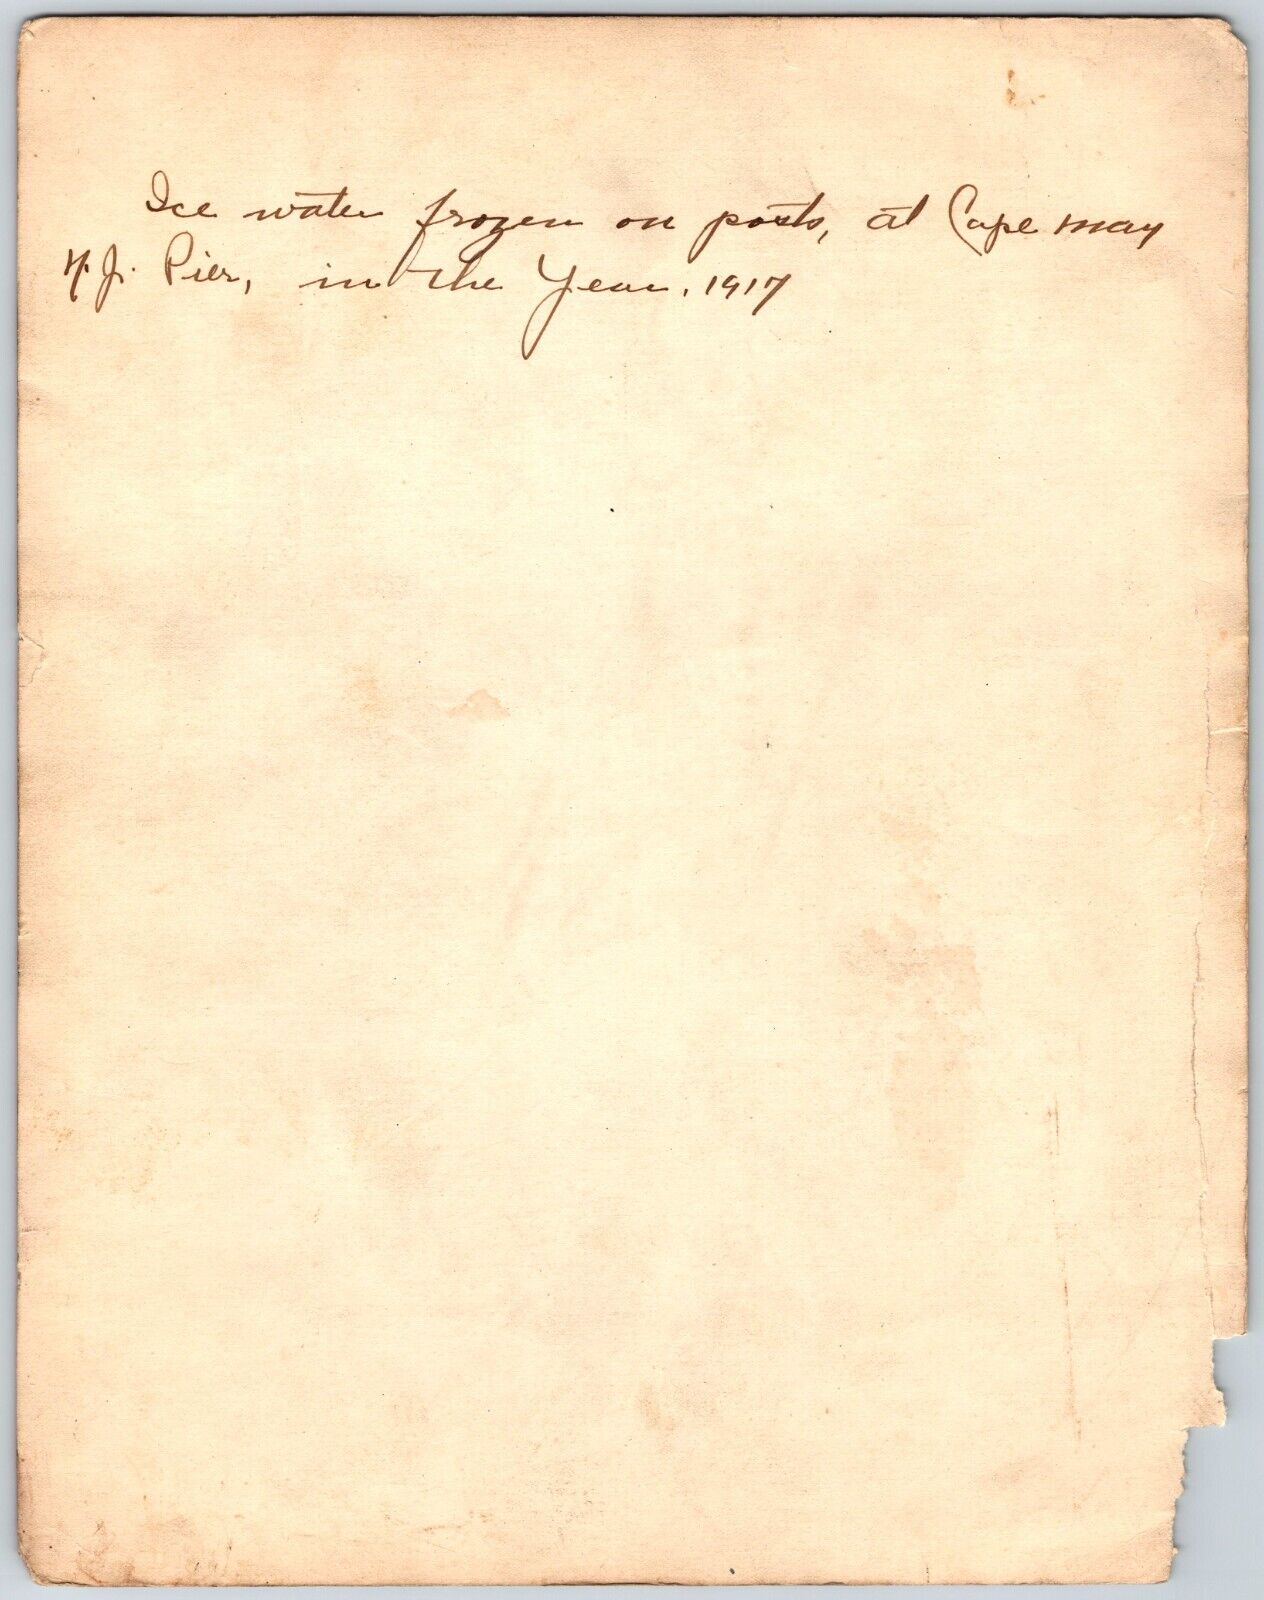 Ice water frozen on posts, at Cape may
N. J. Pier, in the Year. 1917